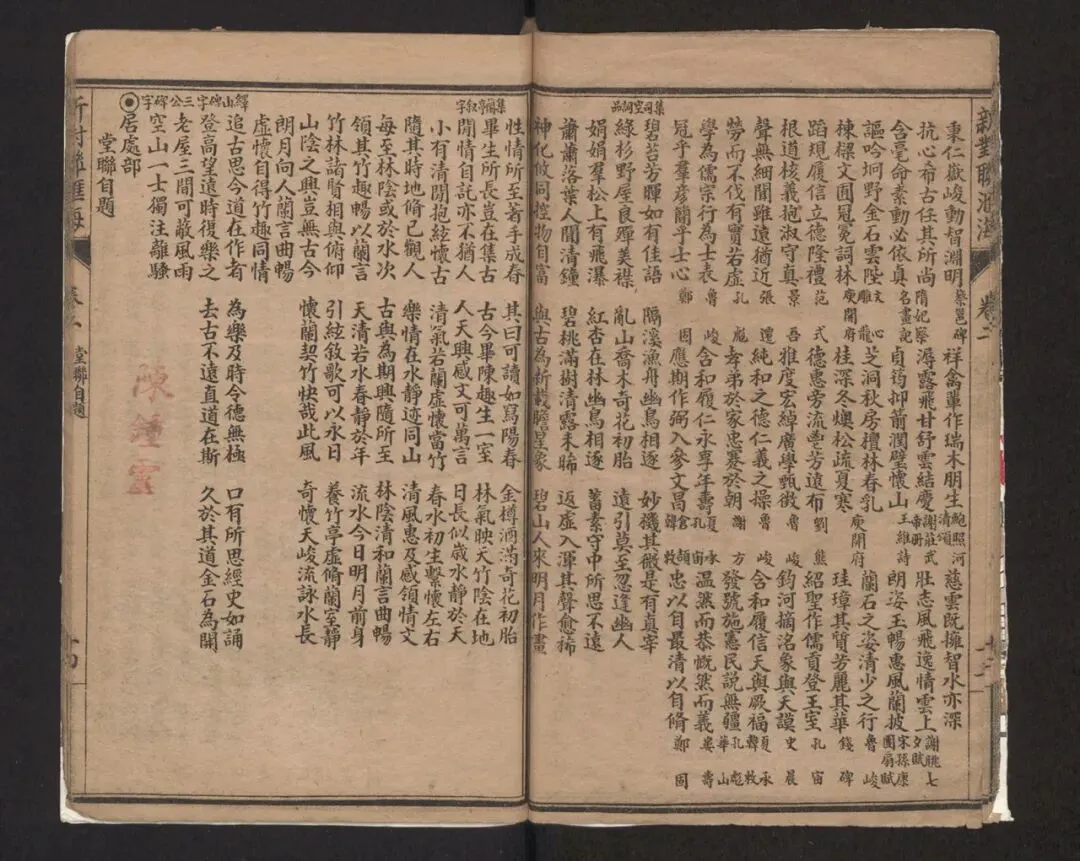 新對聯匯海
卷二
秉仁嶽峻動智淵明 蔡邕碑 祥禽輩作瑞木朋生 鮑照河清頌 慈雲既擁智水亦深
抗心希古任其所尚 潯露飛甘舒雲結慶 壯志風飛逸情雲上
含毫命素動必依真 名畫記 貞筠抑前潤璧懷山 王維詩 朗姿玉暢惠風蘭披
謳吟坰野金石雲陛 文心雕龍 芝洞秋房檀林春乳 蘭石之姿清少之行 魯峻
棟樑文囿冠冕詞林 庾開府 桂深冬燠松疏夏寒 庾開府 珪璋其質芳麗其華 錢碑
蹈規履信立德隆禮 范式 德惠旁流豐芳遠布 劉熊 紹聖作儒貢登王室 孔宙
根道核藝抱淑守真 雅度宏綽廣學甄微 魯峻 鈞河摘洛象與天謨 史晨
聲無細聞雖遠猶近 張遷 純和之德仁義之操 魯峻 含和履信天與厥福 夏承
勞而不伐有實若虛 孔彪 孝弟於家忠謇於朝 發號施憲民說無疆
學為儒宗行為士表 魯峻 含和履仁永享年壽 溫然而恭慨然而義 婁壽
冠乎羣彥簡乎士心 鄭固 應期作弼入參文昌 忠以自最清以自脩 鄭固
集司空詞品
碧苔芳暉如有佳語 隔溪漁舟幽鳥相逐 妙機其微是有真宰
綠杉野屋良殫美襟 亂山喬木奇花初胎 遠引莫至忽逢幽人
娟娟羣松上有飛瀑 紅杏在林幽鳥相逐 蓄素守中所思不遠
蕭蕭落葉人聞清鐘 碧桃滿樹清露未晞 返虛入渾其聲愈稀
神化攸同控物自富 與古為新載瞻星象 碧山人來明月作畫
性情所至着手成春 其曰可讀如寫陽春 金樽酒滿奇花初胎
集蘭亭敘字
畢生所長豈在集古 古今畢陳趣生一室 林氣映天竹陰在地
閒情自託亦不猶人 人天興感文可萬言 日長似歲水靜於天
小有清閒抱絃懷古 清氣若蘭虛懷當竹 春水初生繫懷左右
隨其時地脩己觀人 樂情在水靜迹同山 清風惠及感領情文
每至林陰或於水次 古與為期興隨所至 林陰清和蘭言曲暢
領其竹趣暢以蘭言 天清若水春靜於年 流水今日明月前身
竹林諸賢相與俯仰 引絃敘歌可以永日 養竹亭虛脩蘭室靜
山陰之興豈無古今 懷蘭契竹快哉此風 奇懷天峻流詠水長
朗月向人蘭言曲暢
虛懷自得竹趣同情
繹山碑字三公碑字
追古思今道在作者 為樂及時令德無極 口有所思經史如誦
登高望遠時復樂之 去古不遠直道在斯 久於其道金石為開
老屋三間可蔽風雨
空山一士獨注離騷
居處部
堂聯自題
堂聯自題
陳鍾雲